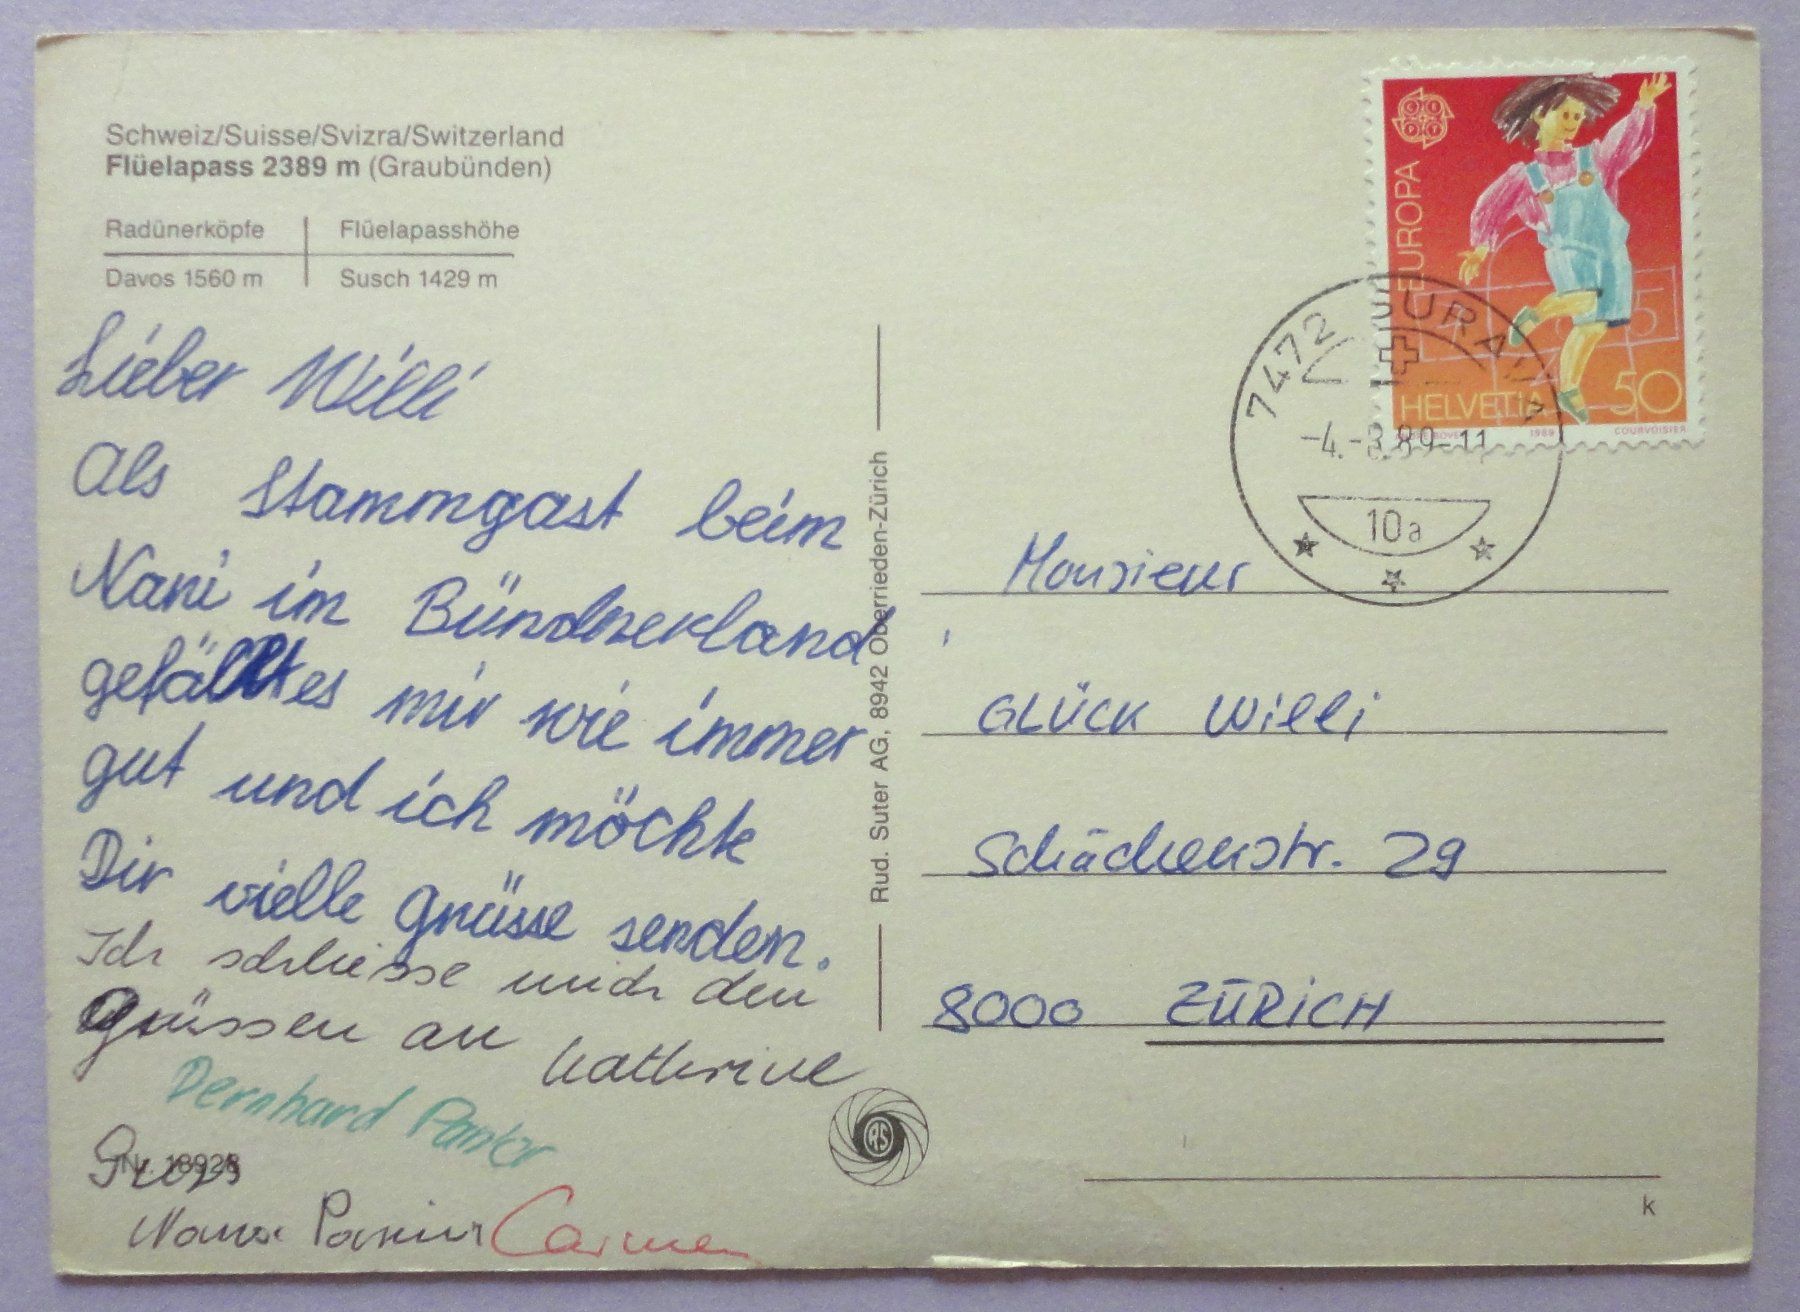 Schweiz/Suisse/Svizra/Switzerland
Flüelapass 2389 m (Graubünden)
Radünerköpfe Flüelapasshöhe
Davos 1560 m Susch 1429 m
Lieber Willi
Als Stammgast beim
Nani im Bündnerland
gefällt es mir wie immer
gut und ich möchte
Dir vielle grüsse senden.
Ich schliesse mich den
Grüssen an Kathrine
Bernhard
Gruss
Nr. 18928
Carmen
Rud. Suter AG, 8942 Oberrieden-Zürich
RS
EUROPA
HELVETIA 50
1989 COURVOISIER
7472 SURAVA
-4.-8.89-11
10a
Monsieur
GLÜCK Willi
Schächenstr. 29
8000 ZÜRICH
k